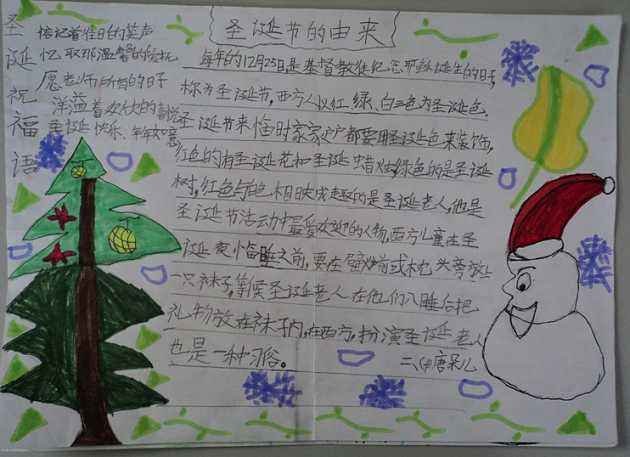 圣诞祝福语
惦记着往日的笑声
忆取那温馨的
愿老师所有的日子
洋溢着欢快的喜悦
圣诞快乐、年年如意
圣诞节的由来
每年的12月25日是基督教徒纪念耶稣诞生的日子,
称为圣诞节,西方人以红、绿、白三色为圣诞色,
圣诞节来临时家家户户都要用圣诞色来装饰,
红色的有圣诞花和圣诞蜡烛绿色的是圣诞
树,红色与白色相映成趣的是圣诞老人,他是
圣诞节活动中最受欢迎的人物,西方儿童在圣
诞夜临睡之前,要在壁炉前或枕头旁放上
一只袜子,等候圣诞老人在他们入睡后把
礼物放在袜子内,在西方,扮演圣诞老人
也是一种习俗。